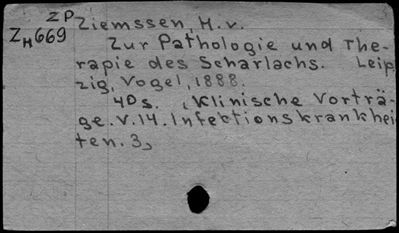 ZP Ziemssen, H. v.
ZH669
Zur Pathologie und The-
rapie des Scharlachs. Leip
zig, Vogel, 1888.
40s. (Klinische Vorträ-
ge. V. 14. Infektionskrankhei
ten. 3)